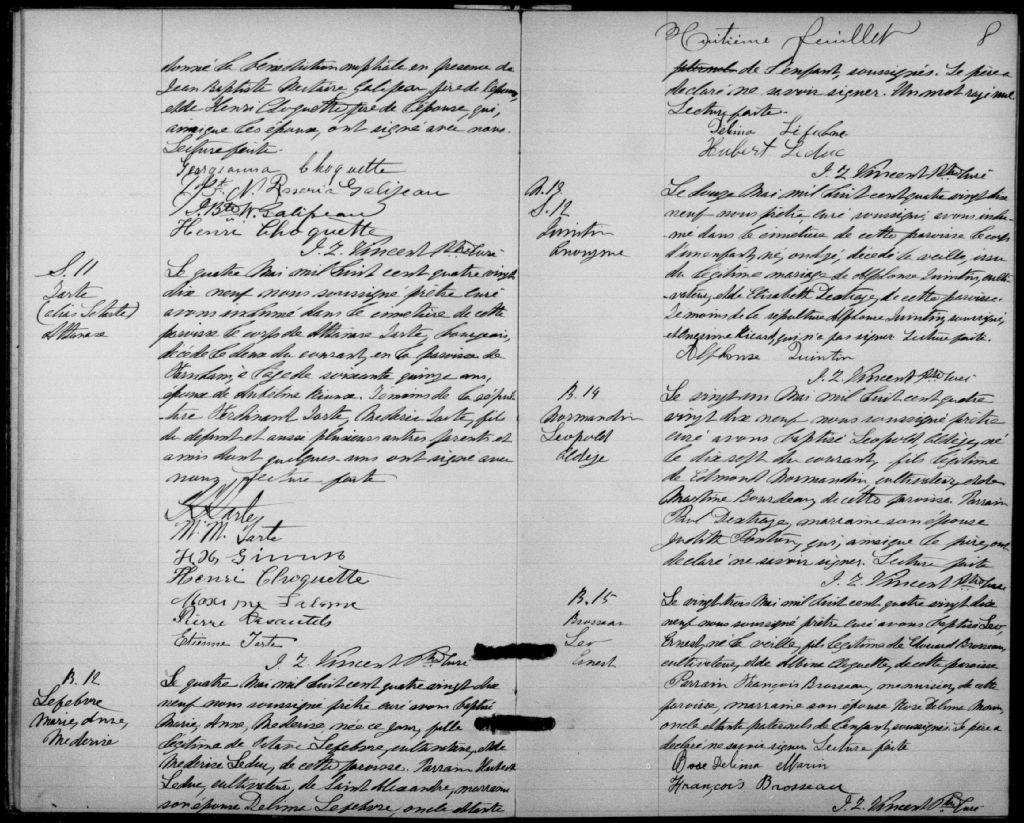 donné la bénédiction nuptiale en présence de
Jean Baptiste Galipeau père de l'époux,
et de Henri Choquette, père de l'épouse, qui,
ainsi que les époux, ont signé avec nous.
Lecture faite.
Georgianna Choquette
J. Bte N. Galipeau
Henri Choquette
J. Z. Vincent Ptre Curé
S. 11
Tarte
(alias Letarte)
Athanase
Le quatre Mai mil huit cent quatre vingt
dix neuf nous soussigné prêtre curé
avons inhumé dans le cimetière de cette
paroisse le corps de Athanase Tarte, bourgeois,
décédé le deux du courant, en la paroisse de
Farnham, à l'age de soixante quinze ans,
époux de Vieux. Témoins de la sépul-
ture Ferdinand Tarte, Médéric Tarte, fils
du défunt et aussi plusieurs autres parents et
amis dont quelques-uns ont signé avec
nous, Lecture faite
M. M. Tarte
Henri Choquette
Pierre Désautels
Etienne Tarte
J. Z. Vincent Ptre Curé
B. 12
Lefebvre
Marie, Anne,
Mederise
Le quatre Mai mil huit cent quatre vingt dix
neuf nous soussigné prêtre curé avons baptisé
Marie, Anne, Mederise, née ce jour, fille
légitime de Lefebvre, cultivateur, et de
Mederise Leduc, de cette paroisse. Parrain Hubert
Leduc, cultivateur, de Saint Alexandre, marraine
son épouse Delima Lefebvre, oncle et tante
Huitième feuillet 8
de l'enfant, soussignés. Le père a
déclaré ne savoir signer. Un mot rayé nul.
Lecture faite.
Delima Lefebvre
Hubert Leduc
J. Z. Vincent Ptre Curé
S. 12
Quintin
Anonyme
Le douze Mai mil huit cent quatre vingt dix
neuf nous prêtre, curé soussigné, avons inhu-
mé dans le cimetière de cette paroisse le corps
d'un enfant, né, ondoyé, décédé la veille, issu
du légitime mariage de Alphonse Quintin, culti-
vateur, et de Elisabeth Dextraze, de cette paroisse.
Témoins de la sépulture Alphonse Quintin, soussigné,
et Onésime Ricard, qui n'a pas signer. Lecture faite.
Alphonse Quintin
J. Z. Vincent Ptre Curé
B. 14
Normandin
Leopold
Aldège
Le vingt un Mai mil huit cent quatre
vingt dix neuf nous soussigné prêtre
curé avons baptisé Leopold Aldège, né
le dix sept du courant, fils légitime
de Edmond Normandin, cultivateur, et de
Martine Bourdeau, de cette paroisse. Parrain
Paul Dextraze, marraine son épouse
Judith Pontin, qui, ainsi que le père, ont
déclaré ne savoir signer. Lecture faite
J. Z. Vincent Ptre Curé
B. 15
Brosseau
Leo
Ernest
Le vingt trois Mai mil huit cent quatre vingt dix
neuf nous soussigné prêtre curé avons baptisé Leo,
Ernest, né la veille, fils légitime de Edouard Brosseau,
cultivateur, et de Albina Choquette, de cette paroisse
Parrain François Brosseau, menuisier, de cette
paroisse, marraine son épouse Rose Delima Marin,
oncle et tante paternels de l'enfant, soussignés. Le père a
déclaré ne savoir signer. Lecture faite
Rose Delima Marin
François Brosseau
J. Z. Vincent Ptre Curé